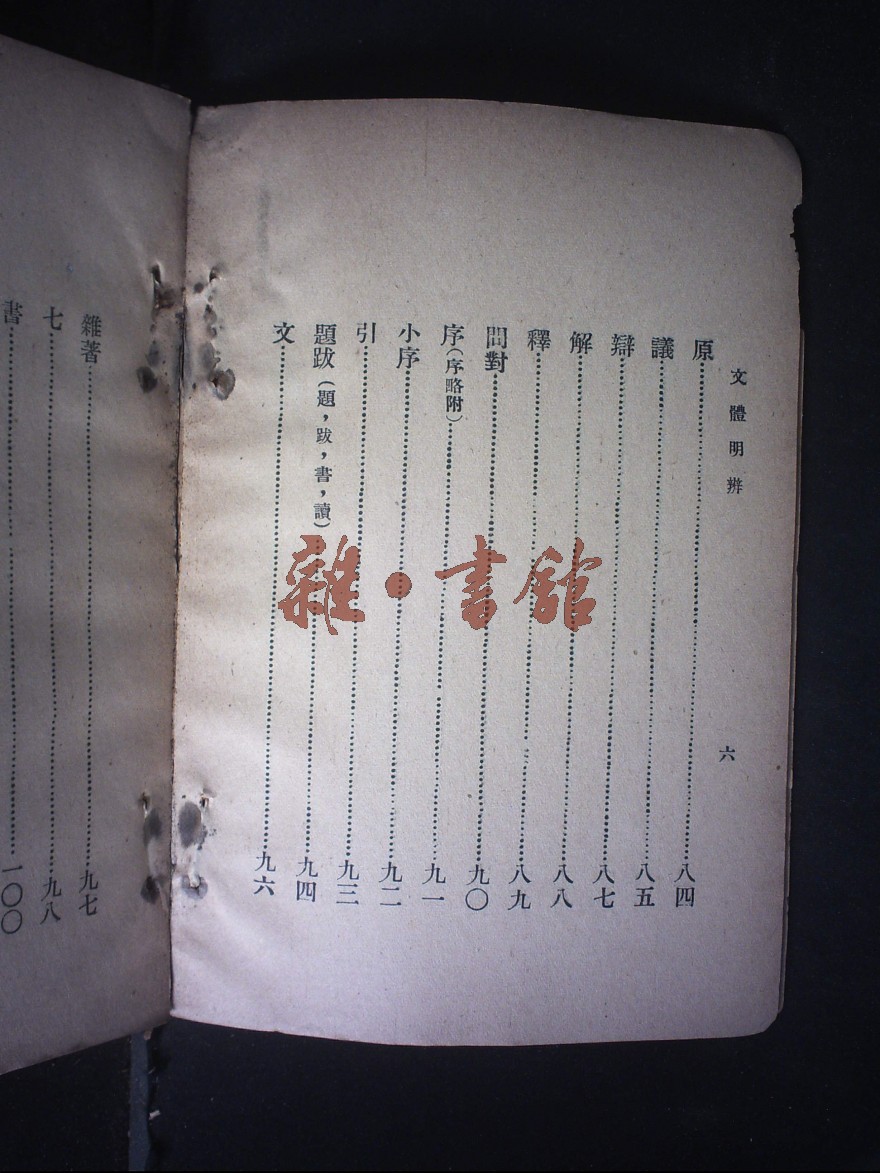 文體明辨
六
原……八四
議……八五
辯……八七
解……八八
釋……八九
問對……九〇
序（序略附）……九一
小序……九二
引……九三
題跋（題，跋，書，讀）……九四
文……九六
雜著……九七
七……九八
書……一〇〇
雜·書館